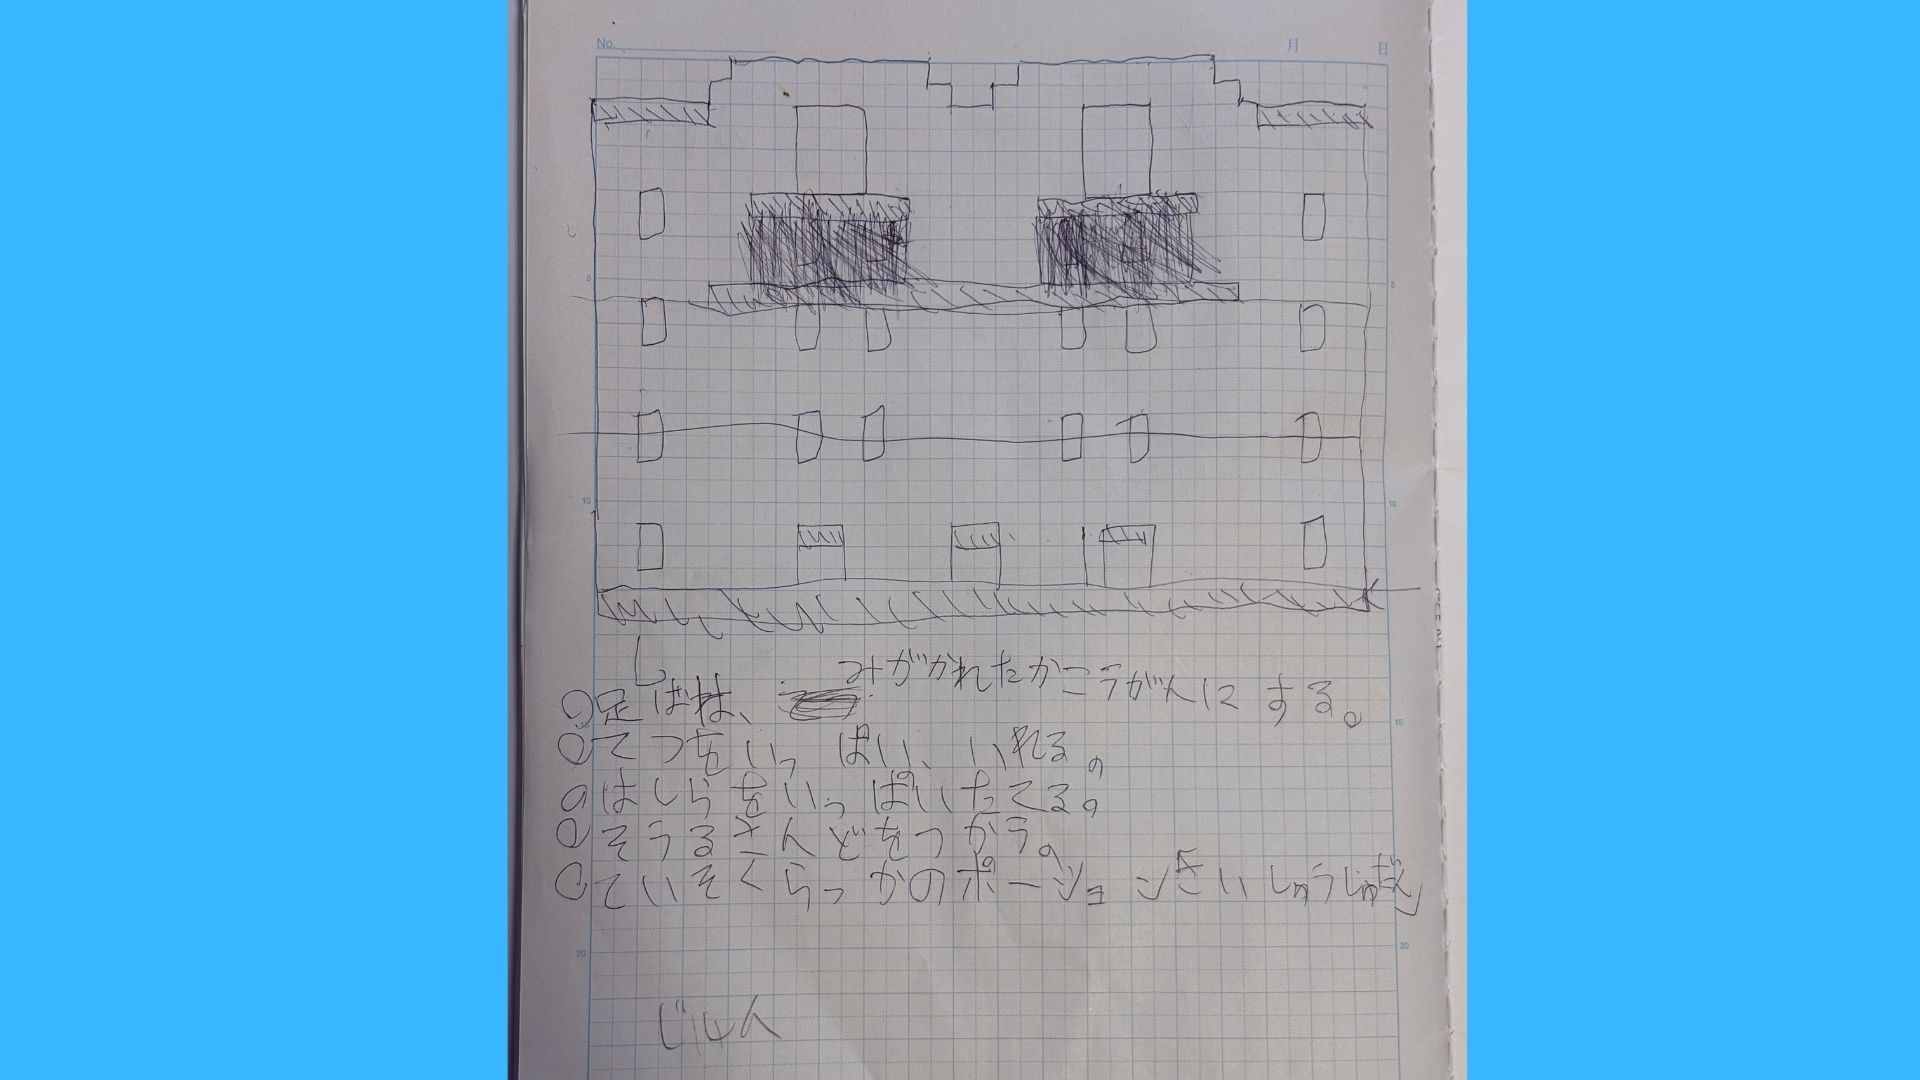 No.
月 日
5 5
10 10
し
みがかれたかこうがんにする。
○足ばは、
○てつをいっぱい、いれる。
○はしらをいっぱいたてる。
○そうるさんどをつかう。
○ていそくらっかのポーション
15
20 20